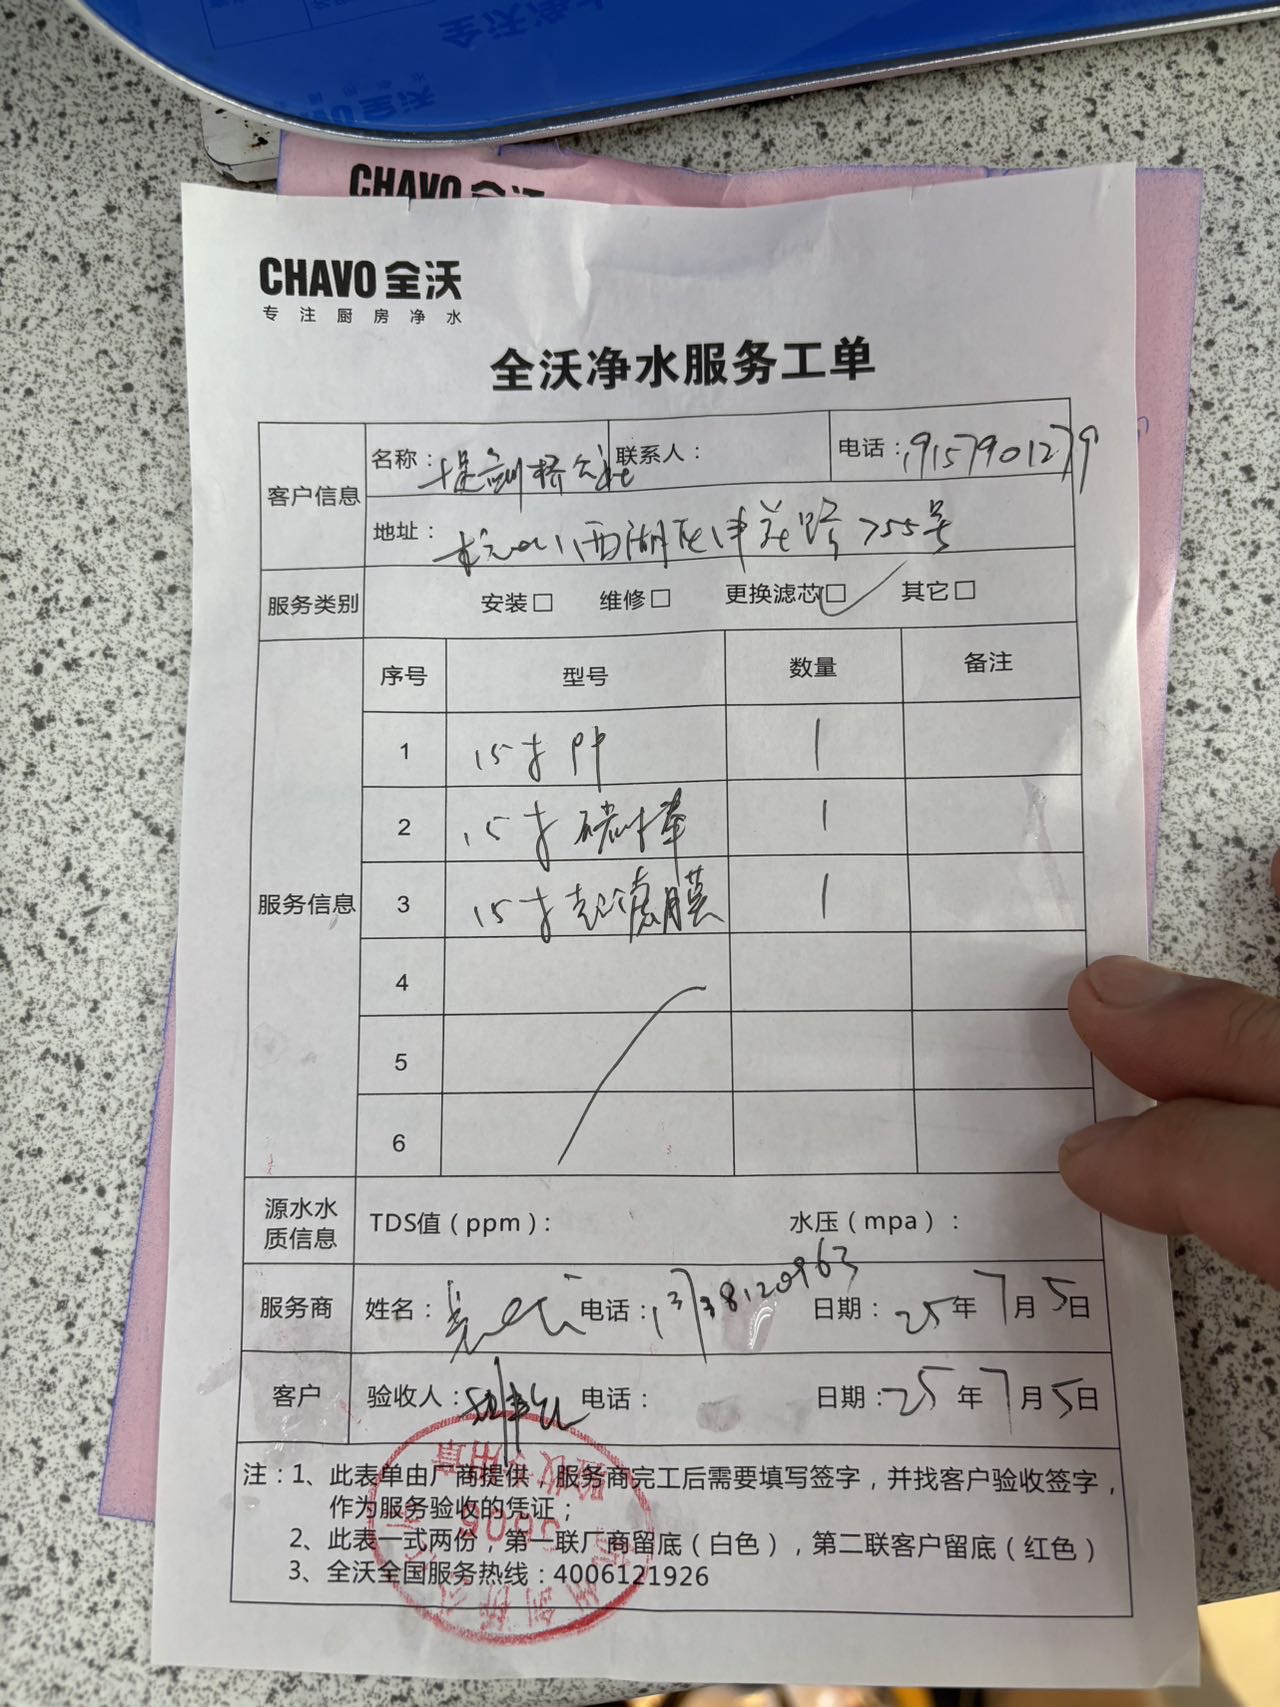 CHAVO 全沃
CHAVO 全沃
专注厨房净水
全沃净水服务工单
客户信息
名称： 剑桥公社
联系人：
电话：19157901279
地址：杭州西湖区申花路755号
服务类别
安装□ 维修□ 更换滤芯□ 其它□
服务信息
序号 型号 数量 备注
1 15寸PP 1
2 15寸碳棒 1
3 15寸超滤膜 1
4
5
6
源水水质信息
TDS值（ppm）：
水压（mpa）：
服务商
姓名： 电话：13738120963 日期：25年7月5日
客户
验收人： 电话： 日期：25年7月5日
注：1、此表单由厂商提供，服务商完工后需要填写签字，并找客户验收签字，
作为服务验收的凭证；
2、此表一式两份，第一联厂商留底（白色），第二联客户留底（红色）
3、全沃全国服务热线：4006121926
验收专用章